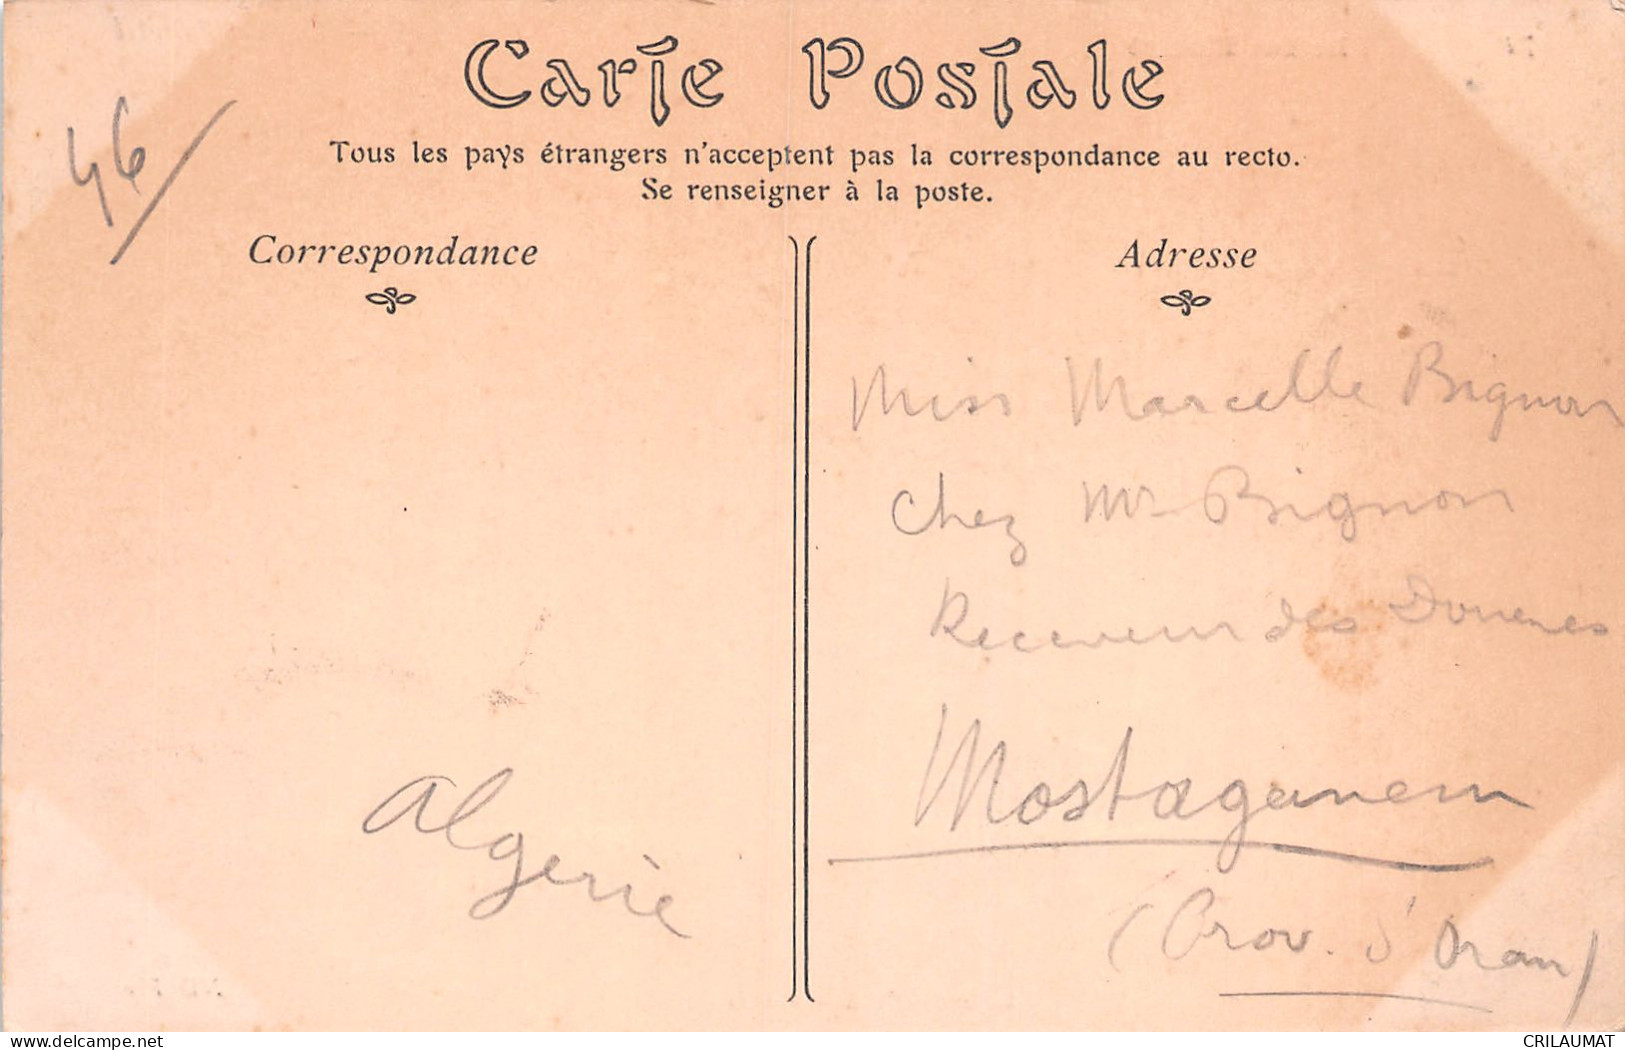 Carte Postale
46/
Tous les pays étrangers n'acceptent pas la correspondance au recto.
Se renseigner à la poste.
Correspondance
Adresse
Miss Marcelle Bignon
Chez Mr Bignon
Receveur des Douanes
Mostaganem
(Prov. d'Oran)
Algerie
delcampe.net
CRILAUMAT